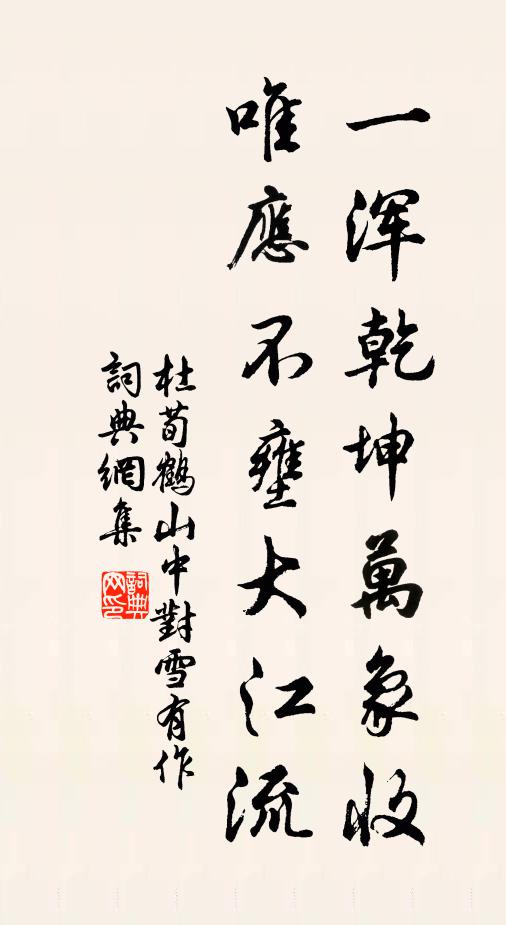 一渾乾坤萬象收
唯應不壅大江流
杜荀鶴山中對雪有作
詞典網集
詞典网印